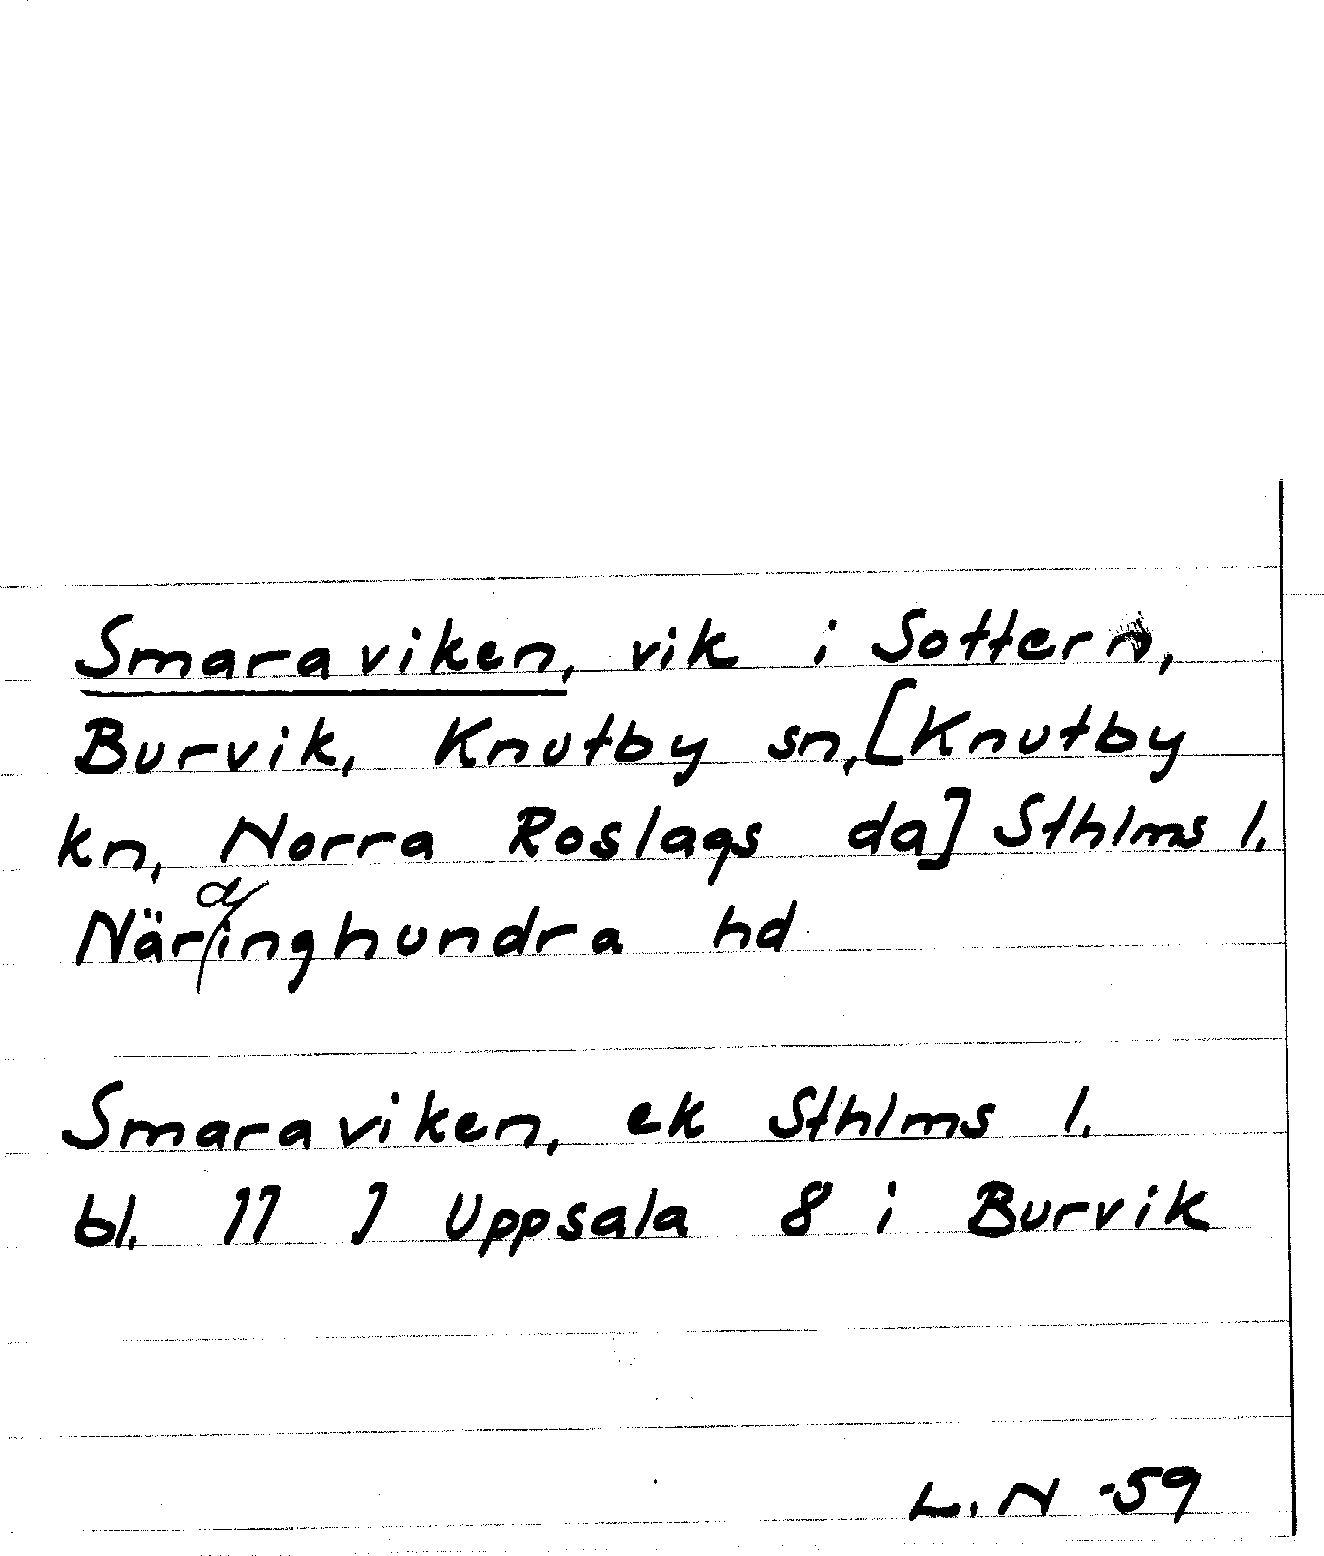 Smaraviken, vik i Sottern,
Burvik, Knutby sn, [Knutby
kn, Norra Roslags da] Sthlms l.
Närdinghundra hd
Smaraviken, ek Sthlms l.
bl. 11 J Uppsala 8 i Burvik
L.N -59